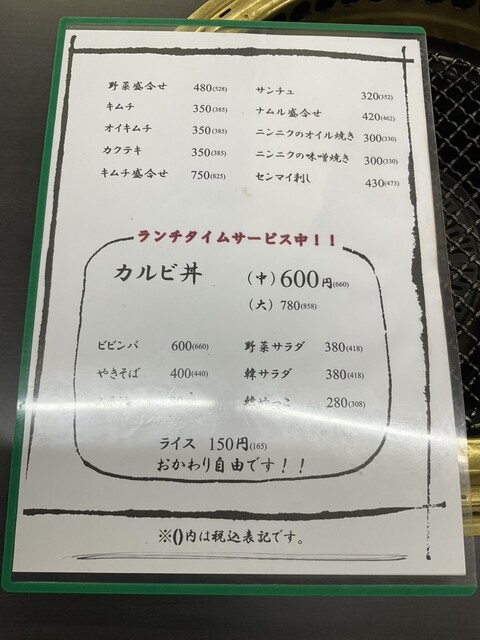 野菜盛合せ 480(528)
キムチ 350(385)
オイキムチ 350(385)
カクテキ 350(385)
キムチ盛合せ 750(825)
サンチュ 320(352)
ナムル盛合せ 420(462)
ニンニクのオイル焼き 300(330)
ニンニクの味噌焼き 300(330)
センマイ刺し 430(473)
ランチタイムサービス中！！
カルビ丼 (中) 600円(660)
(大) 780(858)
ビビンバ 600(660)
やきそば 400(440)
野菜サラダ 380(418)
韓サラダ 380(418)
韓やっこ 280(308)
ライス 150円(165)
おかわり自由です！！
※()内は税込表記です。